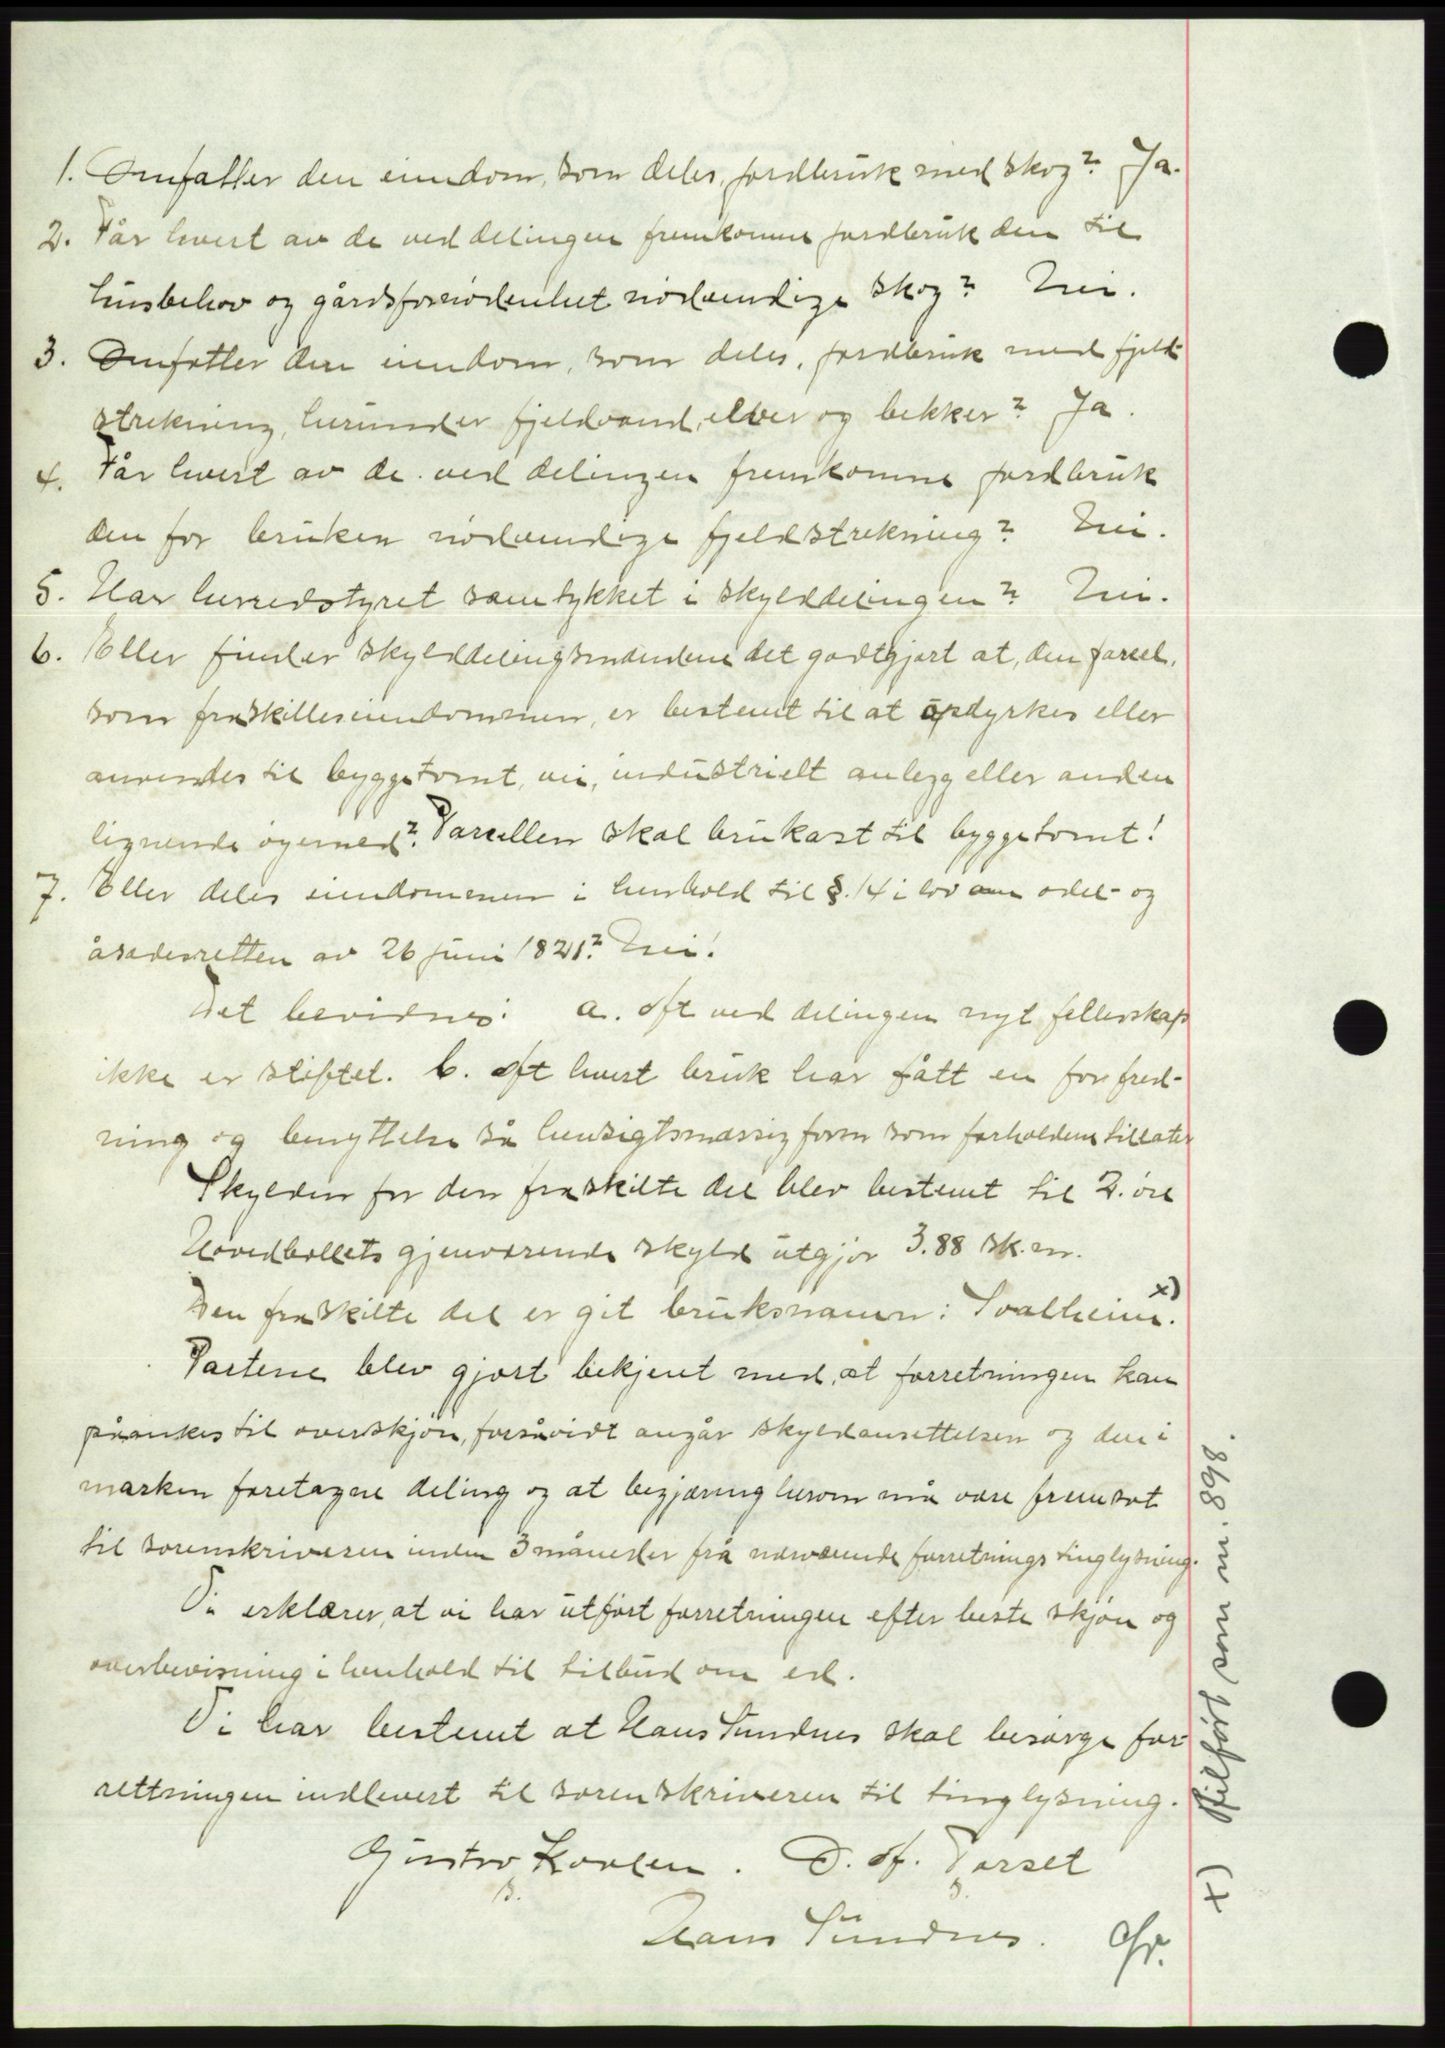 1. Omfatter den eiendom, som deles, jordbruk med skog? Ja.
2. Får hvert av de ved delingen fremkomne jordbruk den til
husbehov og gårdsfornødenhet nødvendige skog? Nei.
3. Omfatter den eiendom, som deles, jordbruk med fjeld-
strekning, herunder fjeldvand, elver og bekker? Ja.
4. Får hvert av de ved delingen fremkomne jordbruk
den for bruken nødvendige fjeldstrekning? Nei.
5. Har herredstyret samtykket i skylddelingen? Nei.
6. Eller finder skylddelingsmendene det godtgjort at, den parsel,
som fraskilles eiendommen, er bestemt til at opdyrkes eller
anvendes til byggetomt, vei, industrielt anlegg eller anden
lignende øiemed? Parsellen skal brukast til byggetomt!
7. Eller deles eiendommen i henhold til §. 14 i lov om odel- og
åsædesretten av 26 juni 1821? Nei!
Det bevidnes: a. At ved delingen nyt fellesskap
ikke er stiftet. b. At hvert bruk har fått en for fred-
ning og benyttelse så hensigtsmæssig form som forholdene tillater
Skylden for den fraskilte del blev bestemt til 2. øre
Hovedbøllets gjenværende skyld utgjør 3.88 sk.m.
Den fraskilte del er git bruksnavn: Svalheim. x)
Partene blev gjort bekjent med, at forretningen kan
påankes til overskjøn, forsåvidt angår skyldansettelsen og den i
marken foretagne deling og at begjæring herom må være fremsat
til sorenskriveren inden 3 måneder fra nærværende forretnings tinglysning.
Vi erklærer, at vi har utført forretningen efter beste skjøn og
overbevisning i henhold til tilbud om ed.
Vi har bestemt at Hans Sundnes skal besørge for-
rettningen indlevert til sorenskriveren til tinglysning.
Gustav Kvalen. D. A. Farset
Hans Sundnes.
x) Tilført som nr. 898.